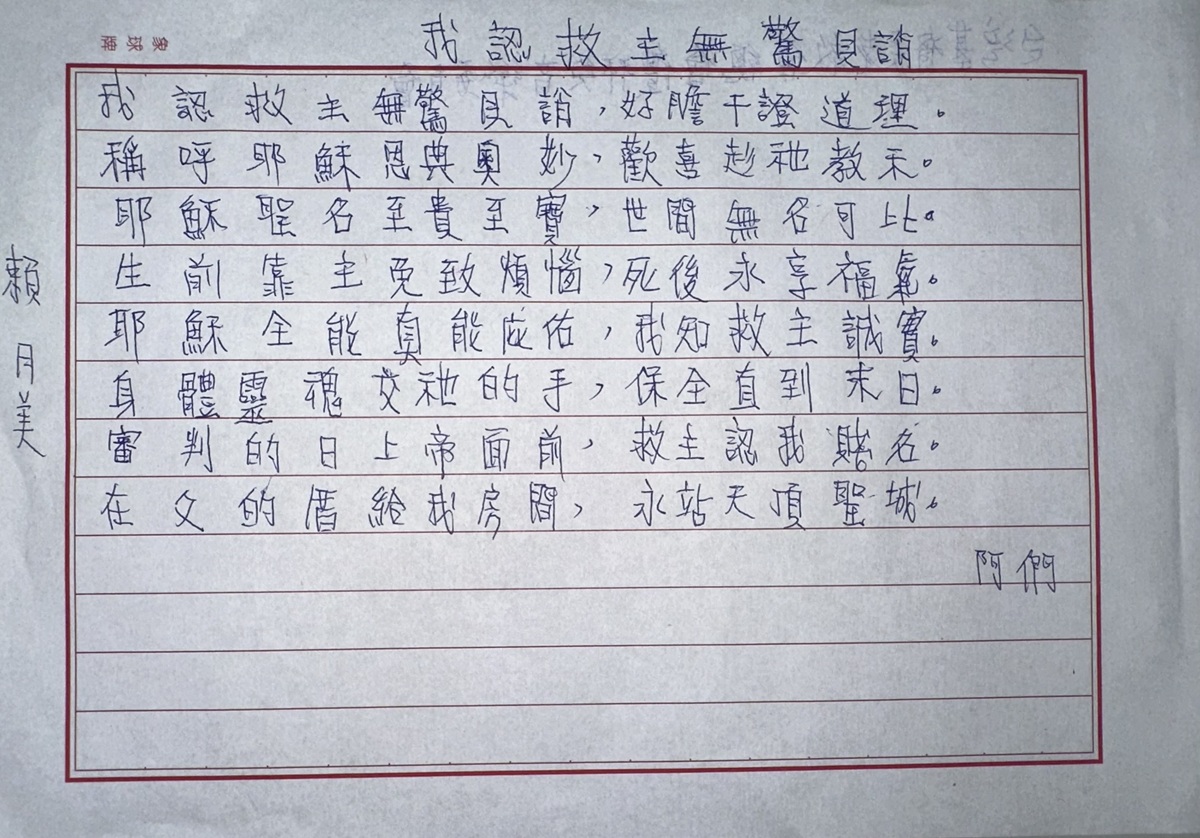 象球牌
我認救主無驚見誚
我認救主無驚見誚，好膽干證道理。
稱呼耶穌恩典奧妙，歡喜趁祂教示。
耶穌聖名至貴至寶，世間無名可比。
生前靠主免致煩惱，死後永享福氣。
耶穌全能真能庇佑，我知救主誠實。
身體靈魂交祂的手，保全直到末日。
審判的日上帝面前，救主認我賤名。
在父的厝給我房間，永站天頂聖城。
阿們
賴月美